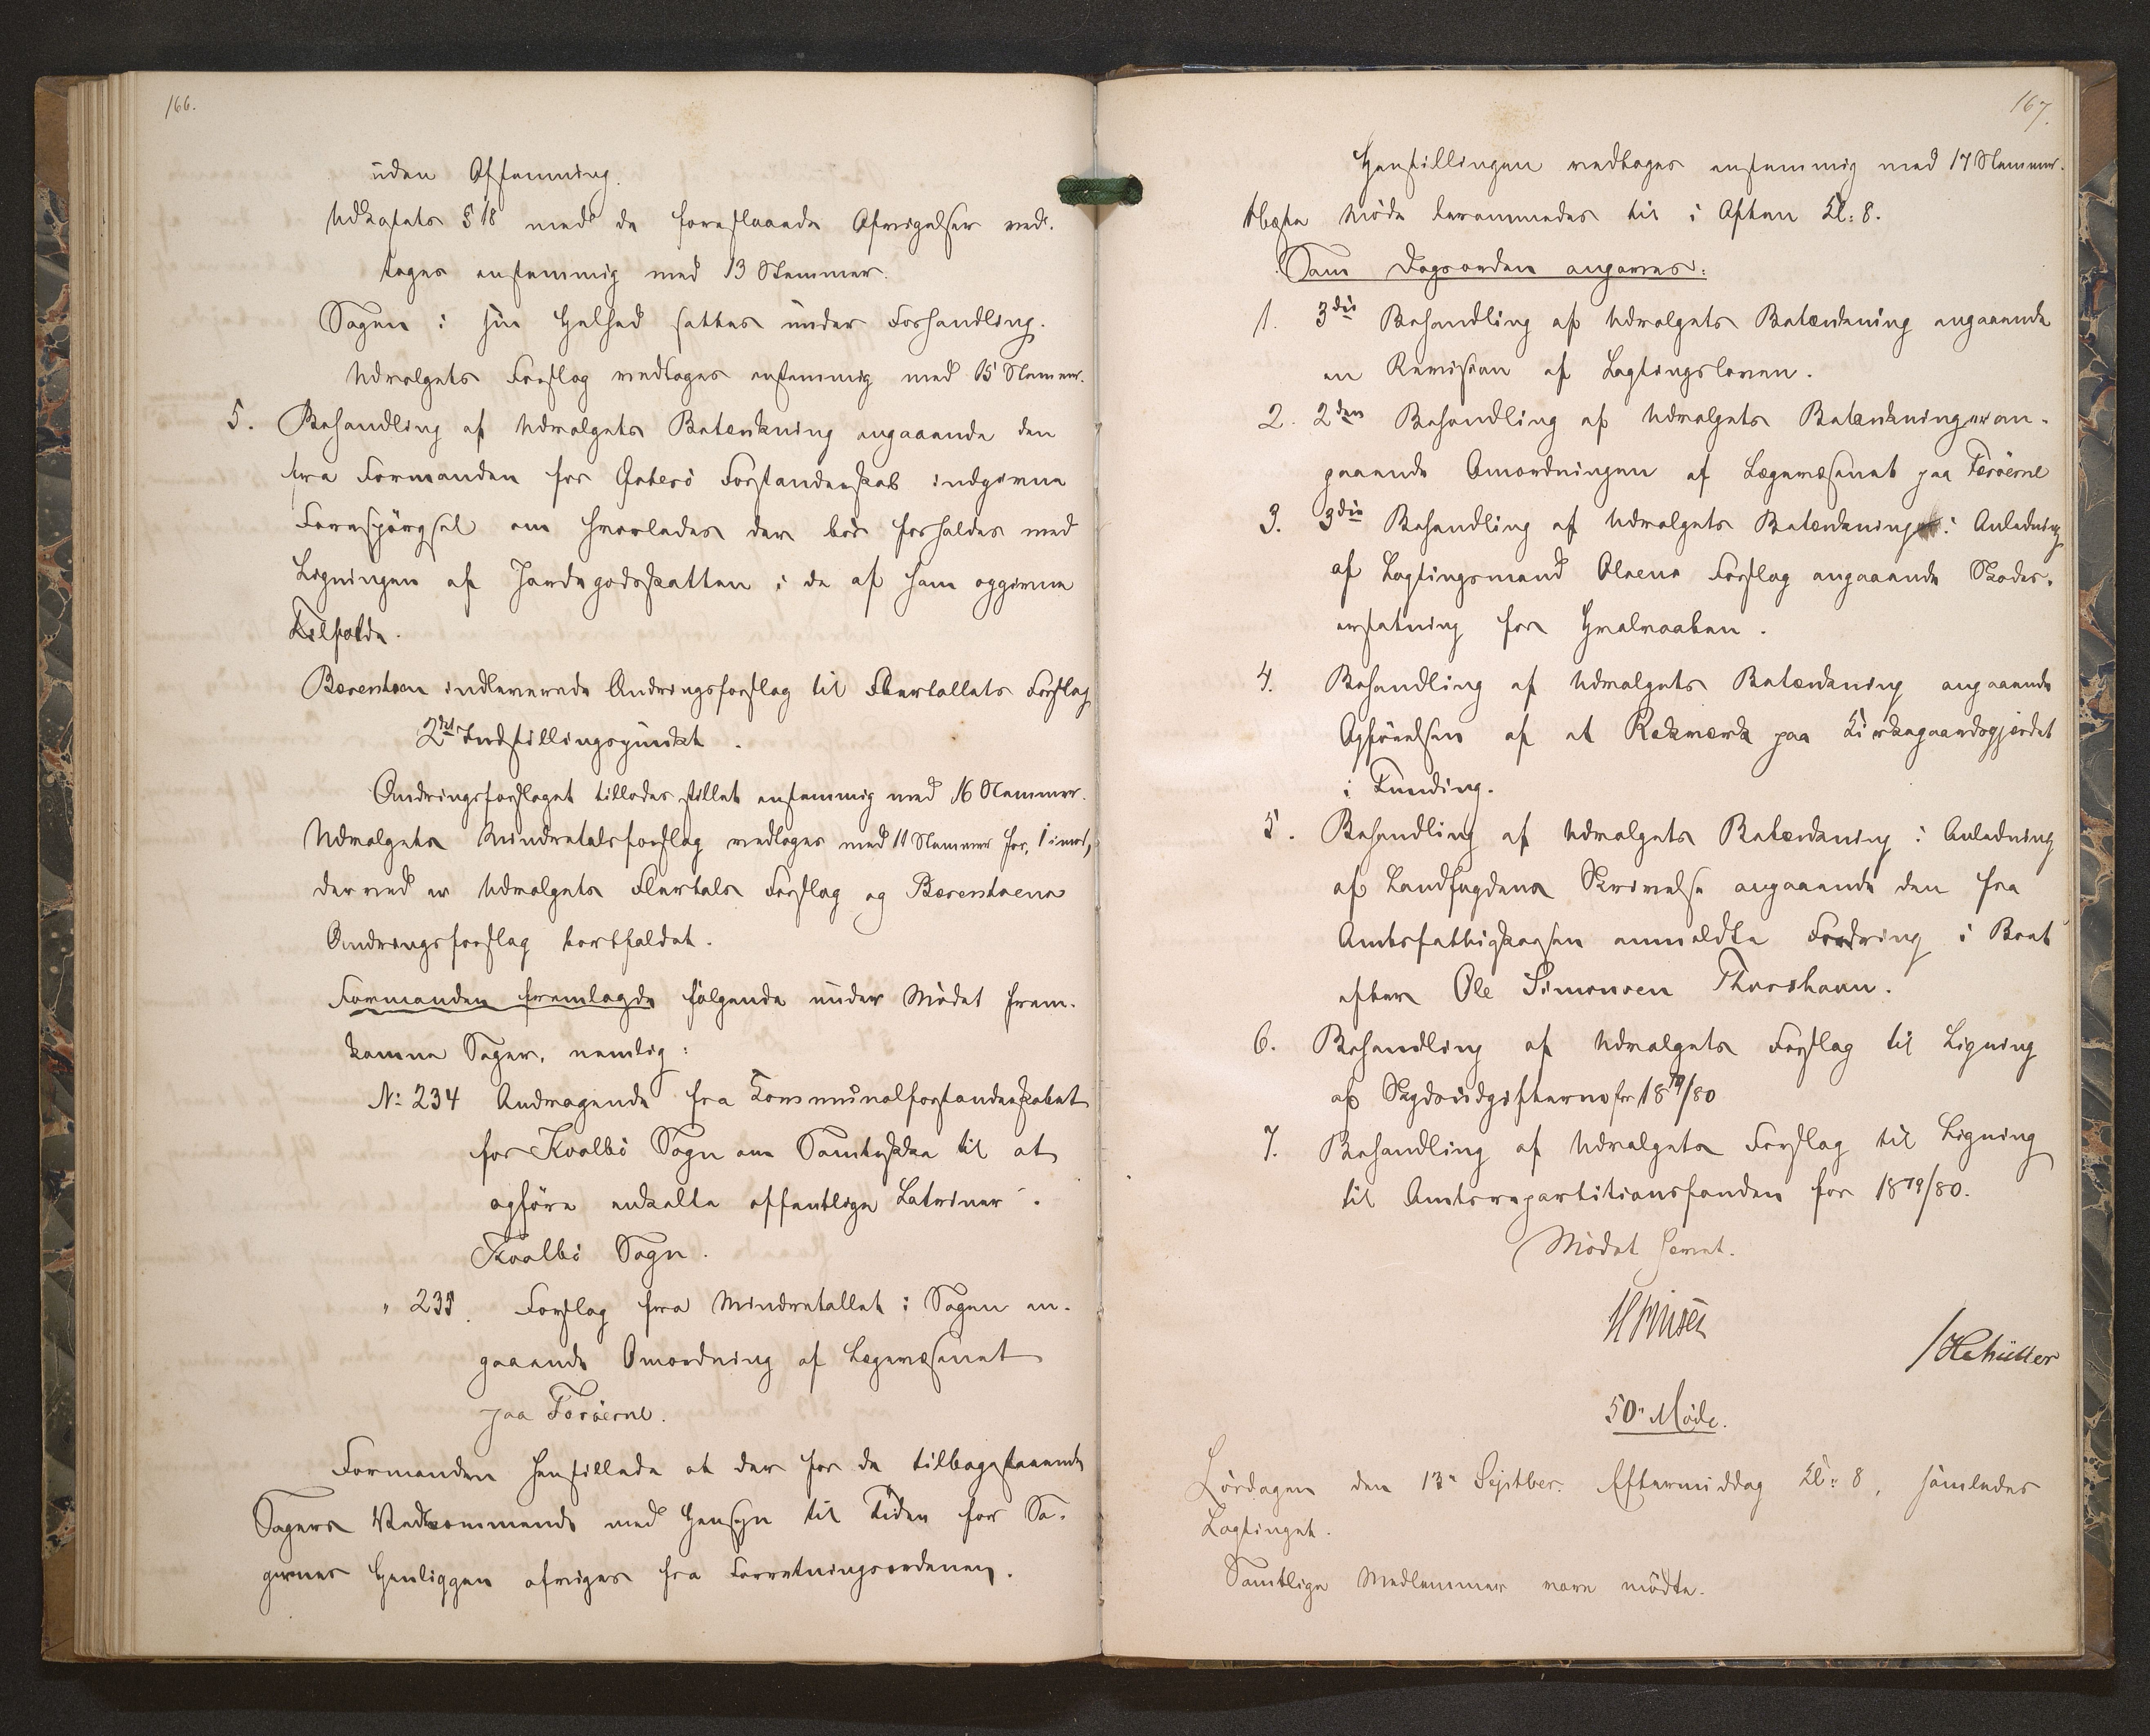 166.
uden Afstemning.
Udkastets § 18 med de foreslaaede Afvigelser ved-
toges enstemmig med 13 Stemmer.
Sagen i sin Helhed sattes under Forhandling.
Udvalgets Forslag vedtoges enstemmig med 15 Stemmer.
5. Behandling af Udvalgets Betænkning angaaende den
fra Formanden for Østerø Forstanderskab indgivne
Forespørgsel om hvorledes der bør forholdes med
Ligningen af Jordegodsskatten i de af ham opgivne
Tilfælde.
Bærentsen indleverede Ændringsforslag til Flertallets Forslag
2det Indstillingspunkt.
Ændringsforslaget tillodes stillet enstemmig med 16 Stemmer.
Udvalgets Mindretalsforslag vedtoges med 11 Stemmer for, 1 imod,
derved er Udvalgets Flertals Forslag og Bærentsens
Ændringsforslag bortfaldet.
Formanden fremlagde følgende under Mødet frem-
komne Sager, nemlig:
No: 234 Andragende fra Kommunalforstanderskabet
for Kvalbø Sogn om Samtykke til at
opføre enkelte offentlige Latriner i
Kvalbø Sogn.
" 235. Forslag fra Mindretallet i Sagen an-
gaaende Omordning af Lægevæsenet
paa Færøerne.
Formanden henstillede at der for de tilbagestaaende
Sagers Vedkommende med Hensyn til Tiden for Sa-
gernes Henliggen afviges fra Forretningsordenen.
167.
Henstillingen vedtoges enstemmig med 17 Stemmer.
Næste Møde berammedes til i Aften Kl: 8.
Som Dagsorden angaves:
1. 3die Behandling af Udvalgets Betænkning angaaende
en Revision af Lagtingsloven.
2. 2den Behandling af Udvalgets Betænkninger an-
gaaende Omordningen af Lægevæsenet paa Færøerne
3. 3die Behandling af Udvalgets Betænkning i Anledning
af Lagtingsmand Olsens Forslag angaaende Skades-
erstatning for Hvalvaaben.
4. Behandling af Udvalgets Betænkning angaaende
Opførelsen af et Rækværk paa Kirkegaardsgjerdet
i Funding.
5. Behandling af Udvalgets Betænkning i Anledning
af Landfogdens Skrivelse angaaende den fra
Amtsfattigkassen anmeldte Fordring i Boet
efter Ole Simonsen Thorshavn.
6. Behandling af Udvalgets Forslag til Ligning
af Skydsudgifterne for 1879/80
7. Behandling af Udvalgets Forslag til Ligning
til Amtsrepartitionsfonden for 1879/80.
Mødet hævet.
/HMüller
50" Møde.
Lørdagen den 13" Septber. Eftermiddag Kl: 8, samledes
Lagtinget.
Samtlige Medlemmer vare mødte.